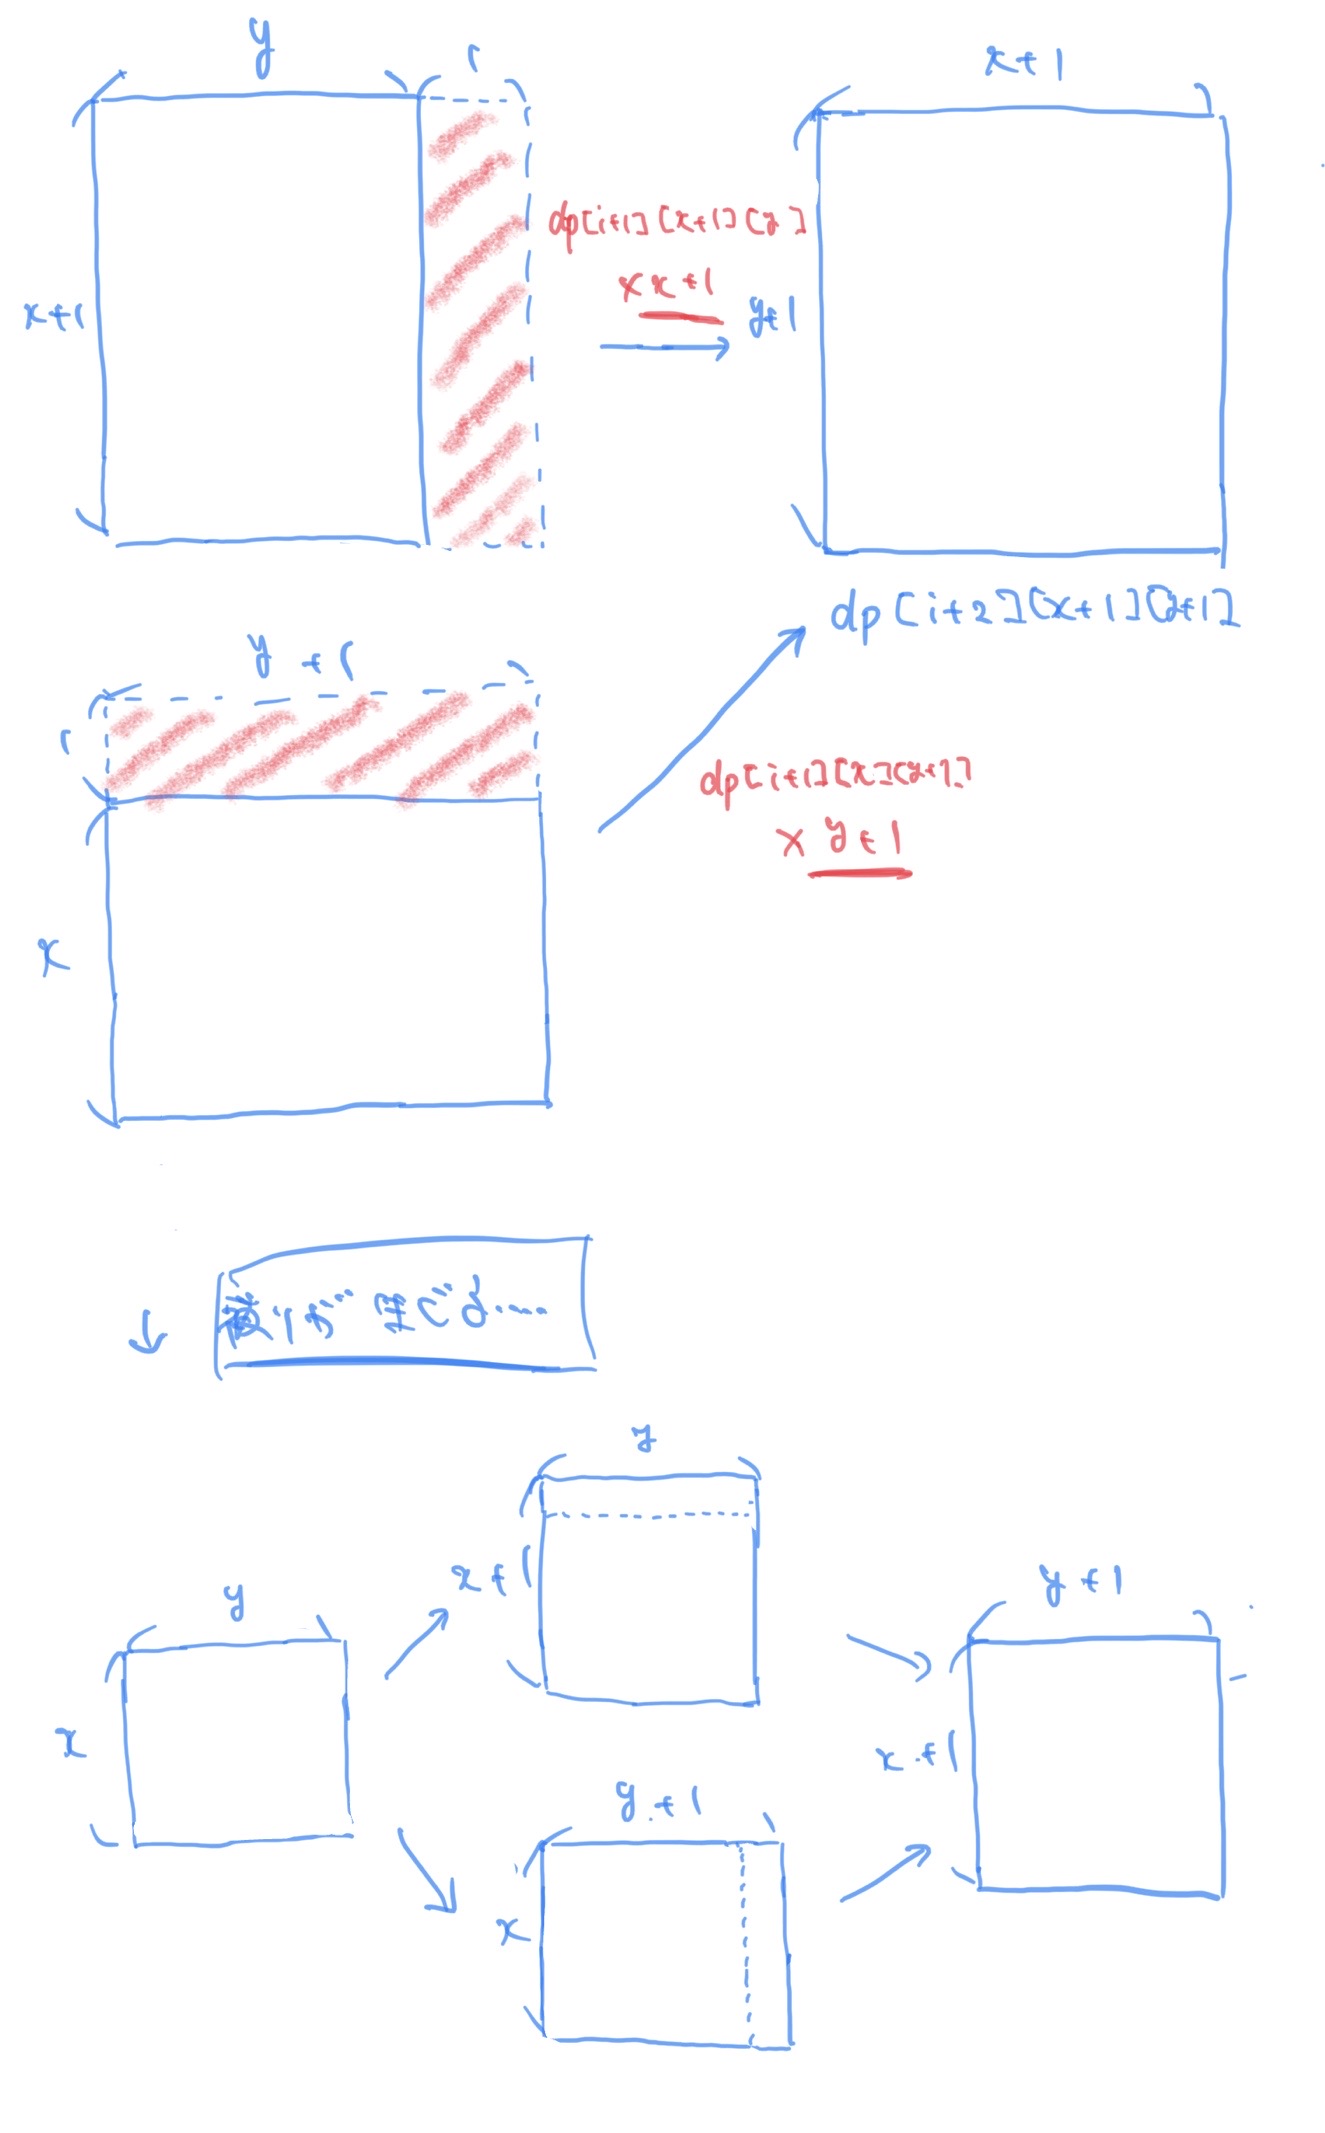 y
1
x+1
x+1
dp[i+1][x+1][y]
× x+1
y+1
dp[i+2][x+1][y+1]
y+1
1
dp[i+1][x][y+1]
× y+1
x
↓
複りが生じる....
y
x+1
y
x
y+1
x+1
y+1
x